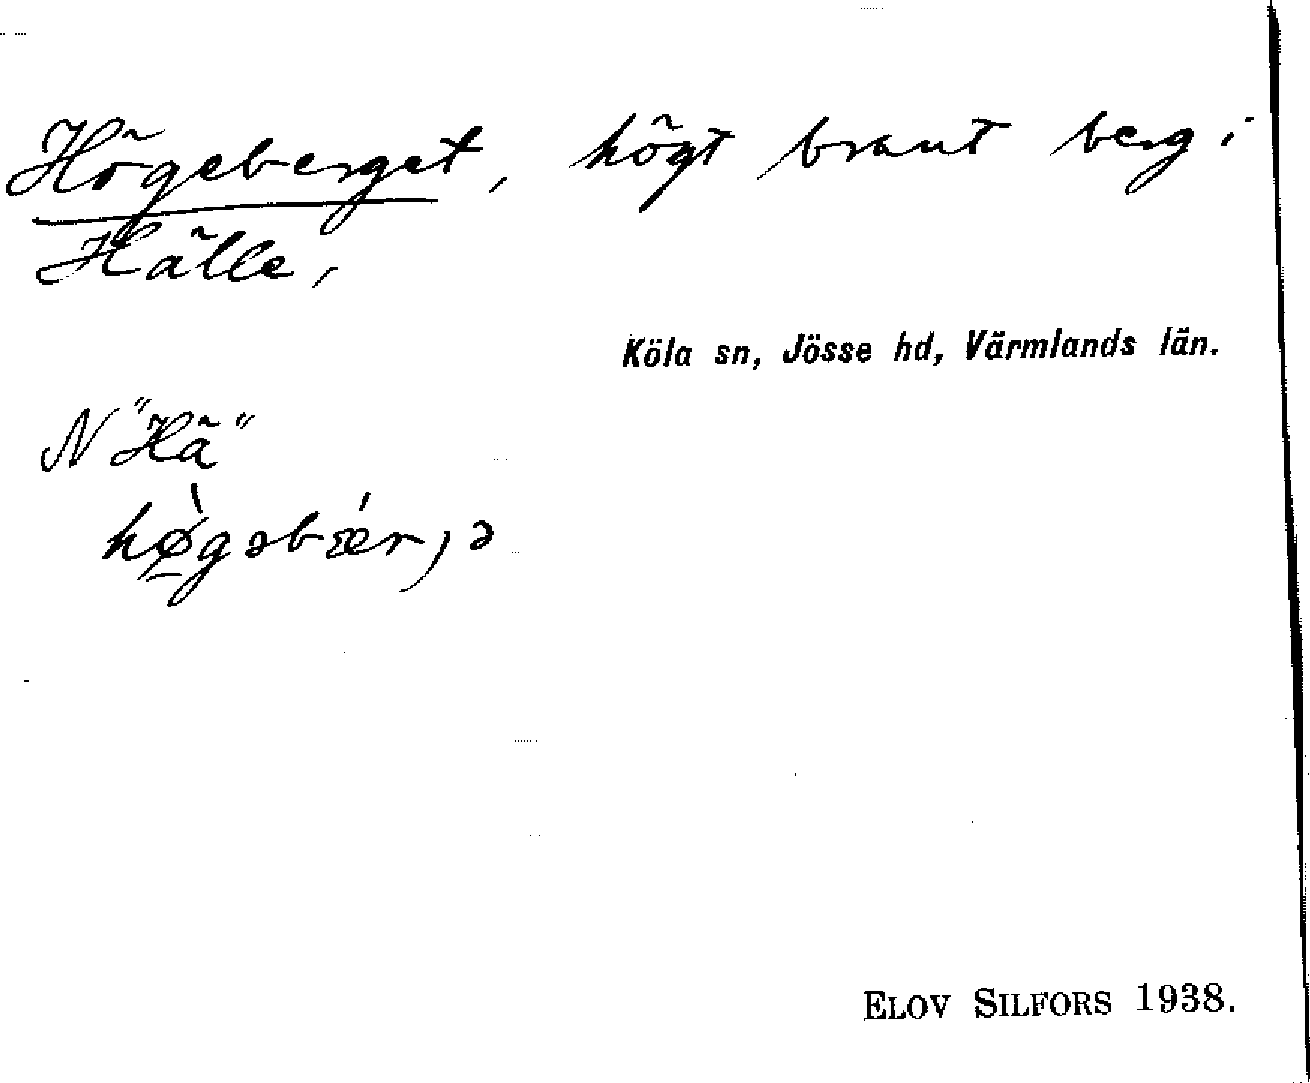 Högeberget, högt brant berg i
Hälle,
Köla sn, Jösse hd, Värmlands län.
N "Hä"
hø̀gəbǽrjə
ELOV SILFORS 1938.